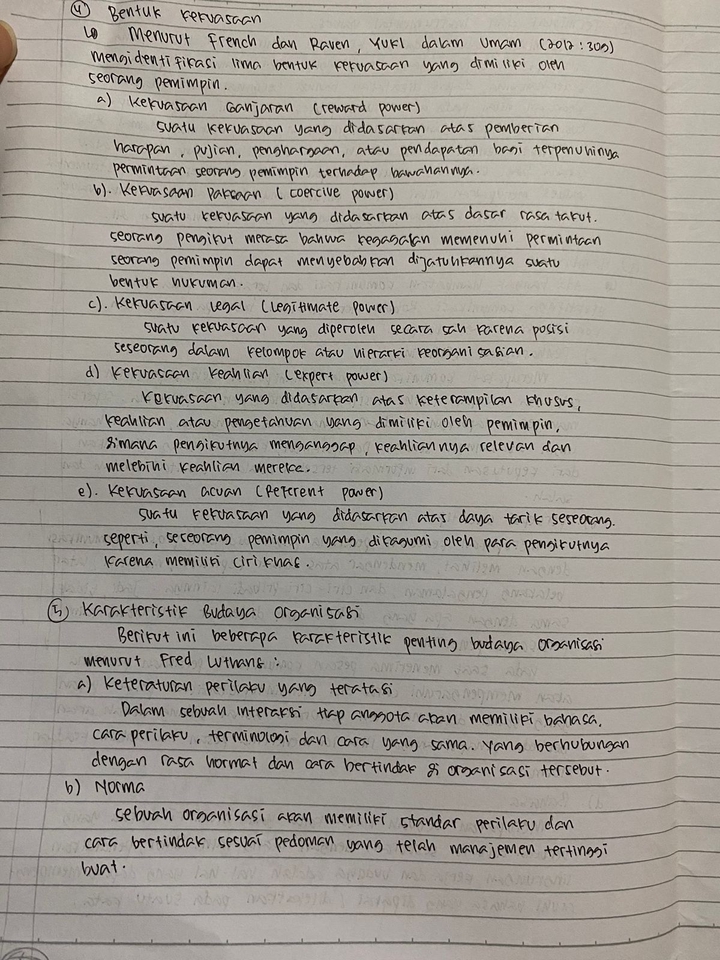 4) Bentuk kekuasaan
↳ Menurut French dan Raven, Yukl dalam Umam (2012:309)
mengidentifikasi lima bentuk kekuasaan yang dimiliki oleh
seorang pemimpin.
a) Kekuasaan Ganjaran (reward power)
suatu kekuasaan yang didasarkan atas pemberian
harapan, pujian, penghargaan, atau pendapatan bagi terpenuhinya
permintaan seorang pemimpin terhadap bawahannya.
b). Kekuasaan Paksaan (coercive power)
suatu kekuasaan yang didasarkan atas dasar rasa takut.
seorang pengikut merasa bahwa kegagalan memenuhi permintaan
seorang pemimpin dapat menyebabkan dijatuhkannya suatu
bentuk hukuman.
c). Kekuasaan Legal (Legitimate power)
suatu kekuasaan yang diperoleh secara sah karena posisi
seseorang dalam kelompok atau hierarki keorganisasian.
d) Kekuasaan Keahlian (expert power)
Kekuasaan yang didasarkan atas keterampilan khusus,
keahlian atau pengetahuan yang dimiliki oleh pemimpin,
dimana pengikutnya menganggap, keahliannya relevan dan
melebihi keahlian mereka.
e). Kekuasaan acuan (Referent power)
suatu kekuasaan yang didasarkan atas daya tarik seseorang.
seperti, seseorang pemimpin yang dikagumi oleh para pengikutnya
karena memiliki ciri khas.
5) Karakteristik Budaya Organisasi
Berikut ini beberapa karakteristik penting budaya organisasi
menurut Fred Luthans :
a) Keteraturan perilaku yang teratasi
Dalam sebuah interaksi tiap anggota akan memiliki bahasa,
cara perilaku, terminologi dan cara yang sama. Yang berhubungan
dengan rasa hormat dan cara bertindak di organisasi tersebut.
b) Norma
sebuah organisasi akan memiliki standar perilaku dan
cara bertindak sesuai pedoman yang telah manajemen tertinggi
buat.